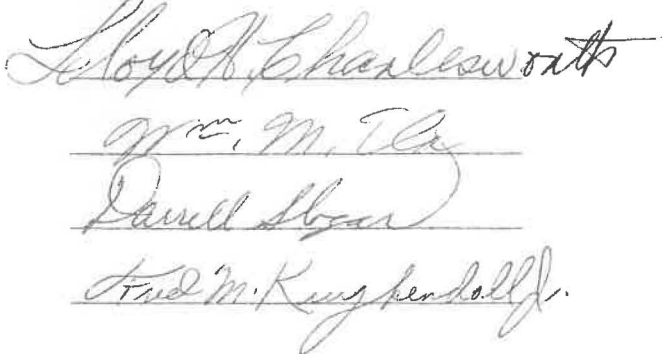 Lloyd H. Charlesworth
Wm. M.
Darrell
Fred M. Kuykendall Jr.